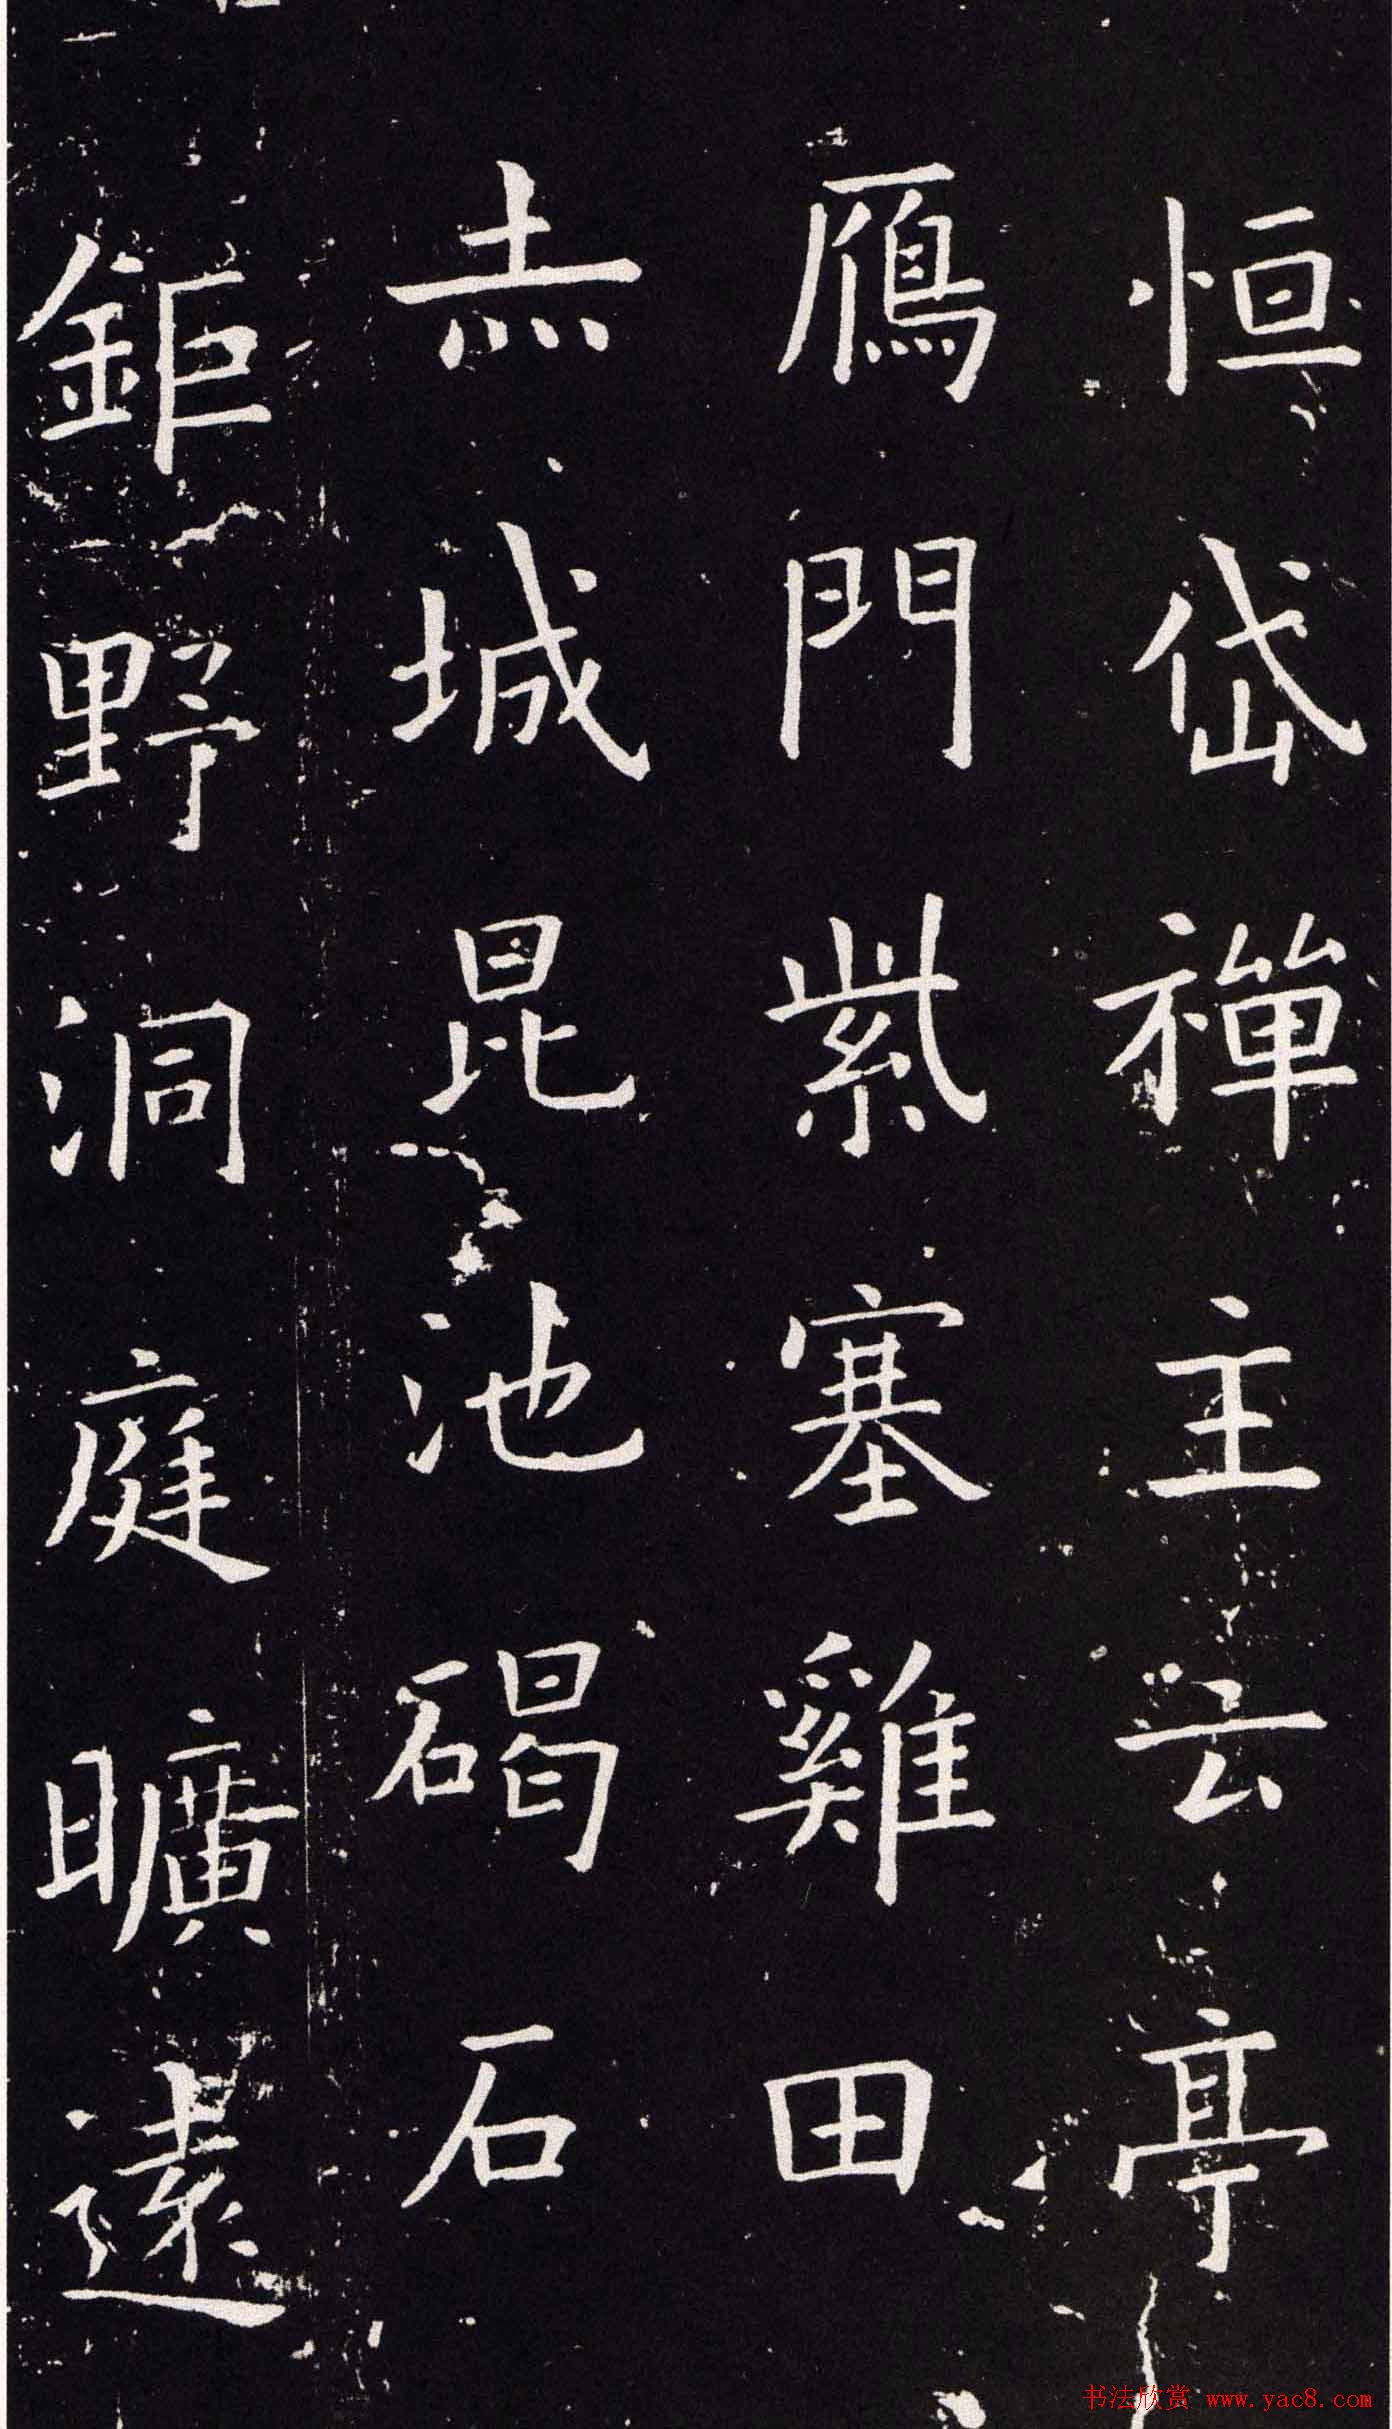 恒岱禪主云亭
鴈門紫塞雞田
赤城昆池碣石
鉅野洞庭曠遠
书法欣赏 www.yac8.com